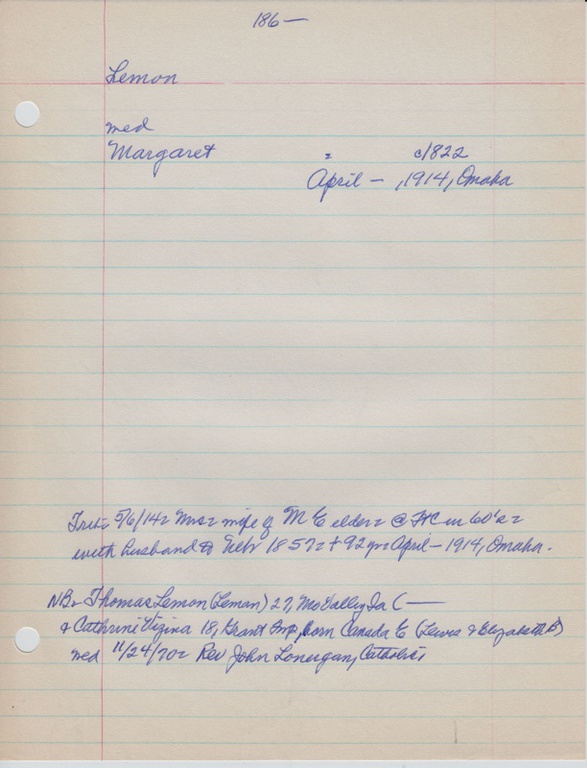 186—
Lemon
med
Margaret = c1822
April — , 1914, Omaha
Trib= 5/6/14= Mrs= wife of M E elder= @ FtC in 60's=
with husband to Nebr 1857= + 92 yrs April — 1914, Omaha.
NB= Thomas Lemon (Leman) 27, Mo Valley Ia (—
& Cathrine 18, Grant born Canada E (Lewis & Elizabeth
med 11/24/70= Rev John Lonergan, Catholic